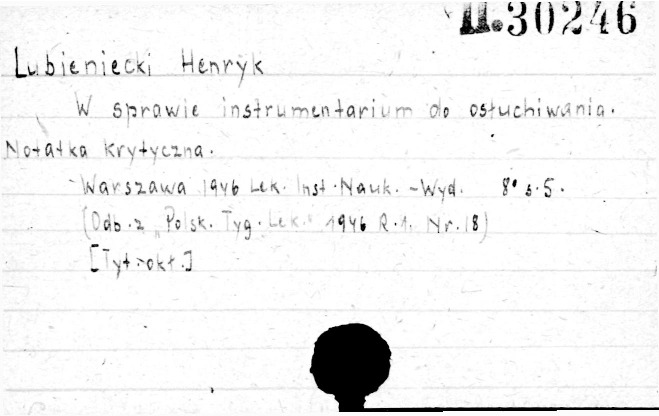 II.30246
Lubieniecki Henryk
W sprawie instrumentarium do osłuchiwania.
Notatka krytyczna.
Warszawa 1946 Lek. Inst. Nauk. -Wyd. 8° s.5.
(Odb. z "Polsk. Tyg. Lek." 1946 R.1. Nr.18)
[Tyt. okł.]